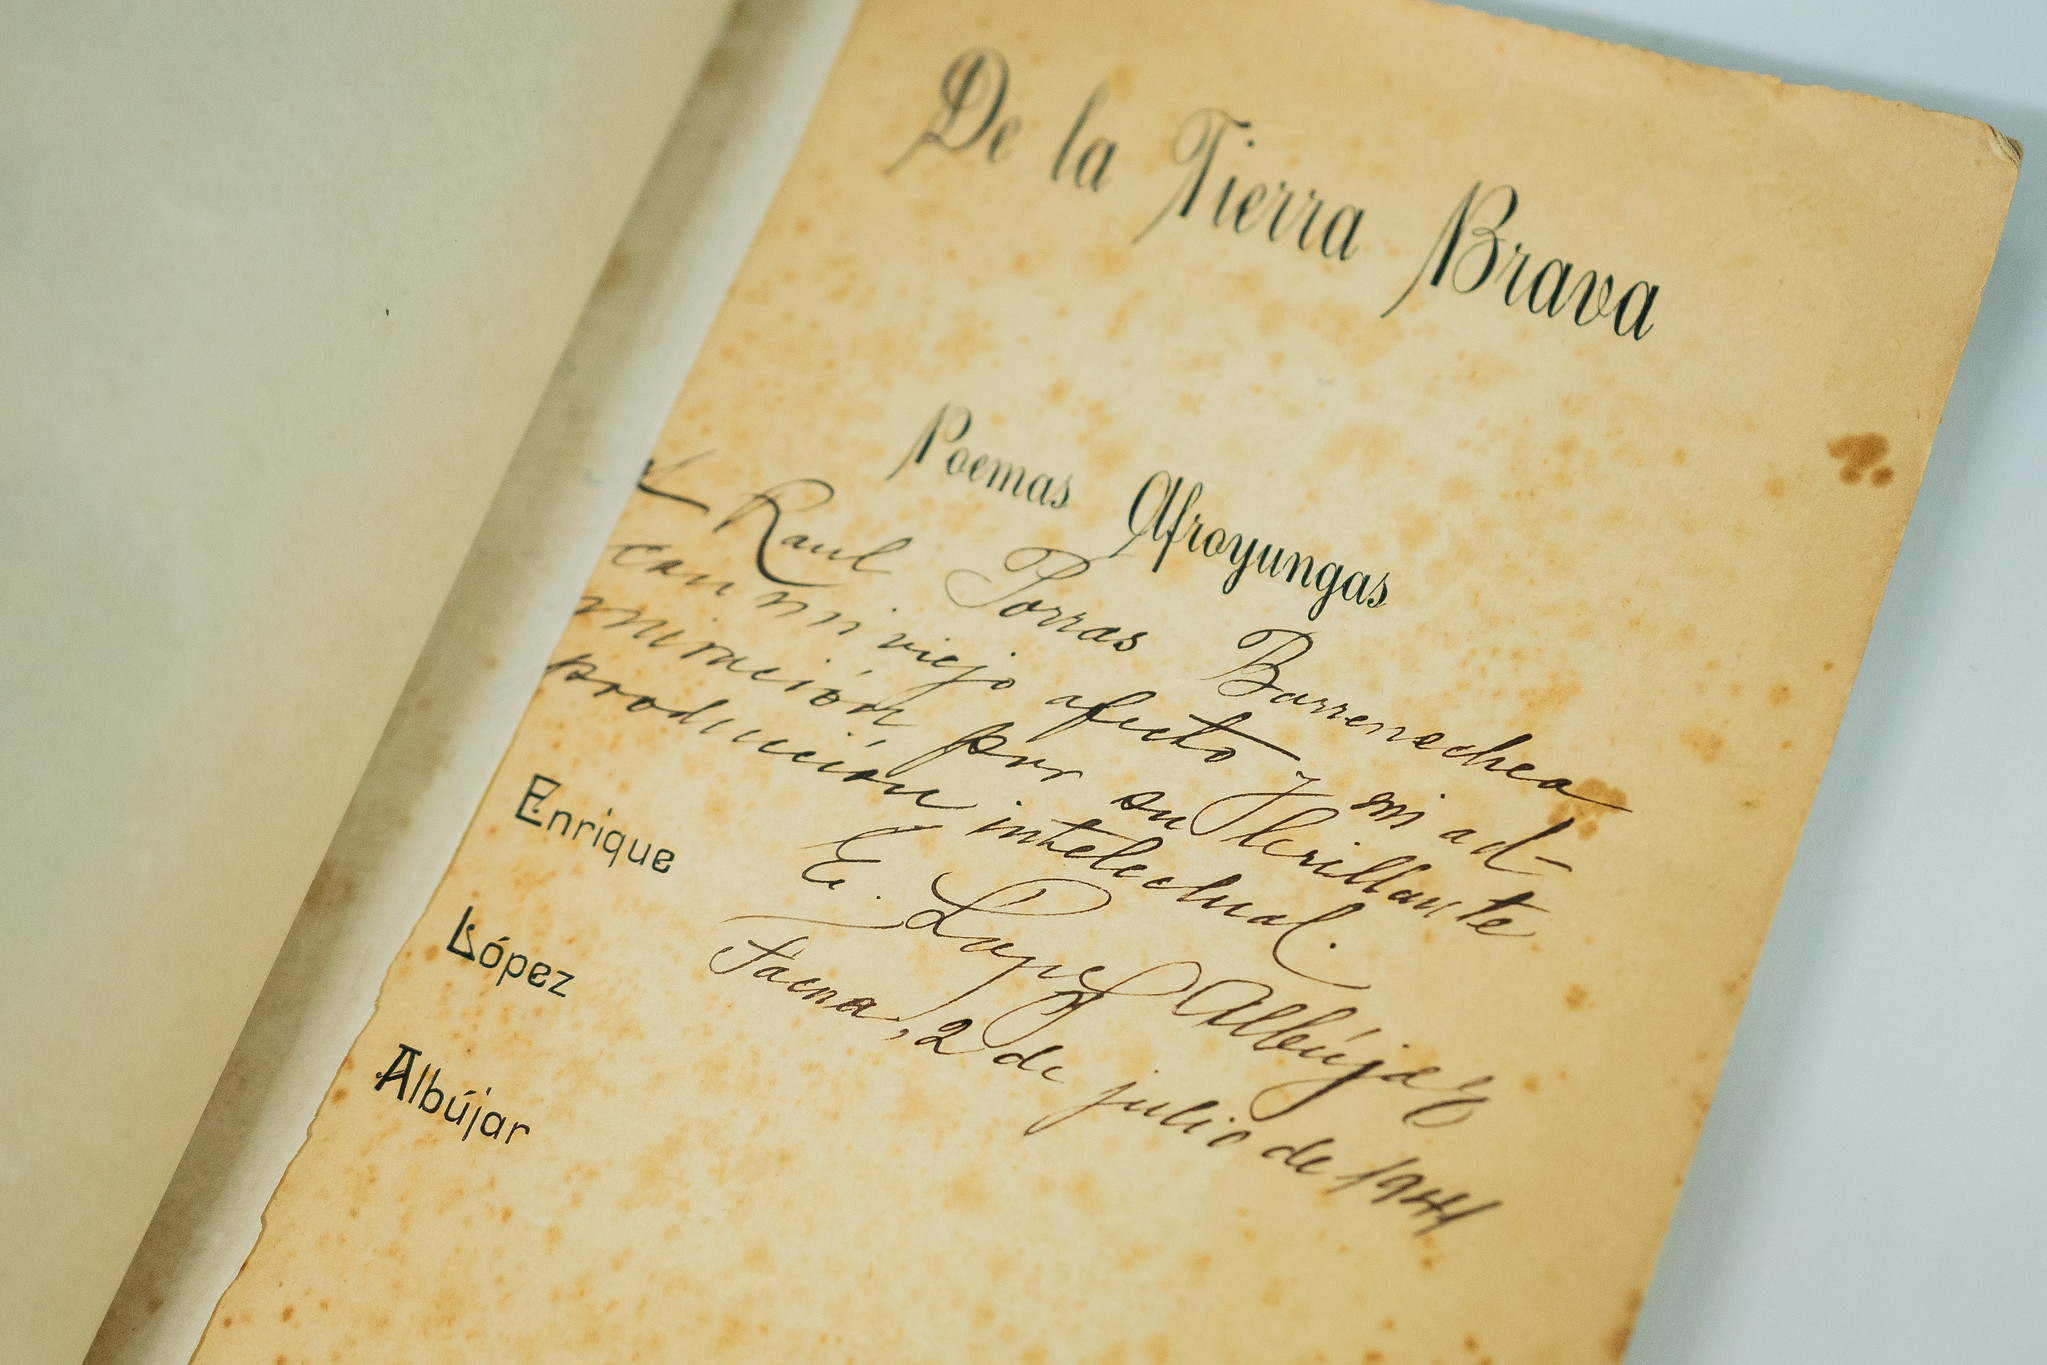 De la Tierra Brava
Poemas Afroyungas
A Raul Porras Barrenechea
con mi viejo afecto y mi ad-
miración por su brillante
producción intelectual.
E. López Albújar
Tacna, 2 de julio de 1941
Enrique
López
Albújar